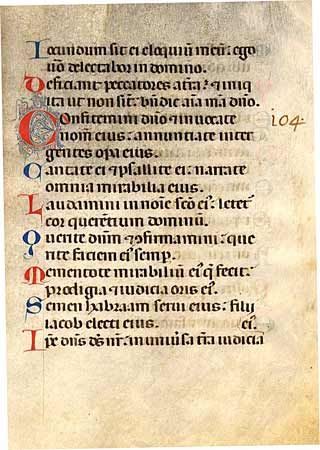 Iocundum sit ei eloquiũ meũ: ego
uo delectabor in domino.
Deficiant peccatores a t̃ra: & iniq
ita ut non sĩt: bñdic aĩa mea dño.
Confitemini dño & inuocate
nom̃ eius: annuntiate inter
gentes opa eius.
104
Cantate ei & psallite ei: narrate
omnia mirabilia eius.
Laudamini in noĩe sc̃o ei: letet᷑
cor querentium dominum.
Querite dñm & ꝯfirmamini: que
rite faciem ei semp.
Mementote mirabiliũ ei q̃ fecit:
prodigia & iudicia oris ei.
Semen habraam serui eius: filij
iacob electi eius. ei.
Ipe dñs ds̃ nr̃: in uniũsa t̃ra iudicia